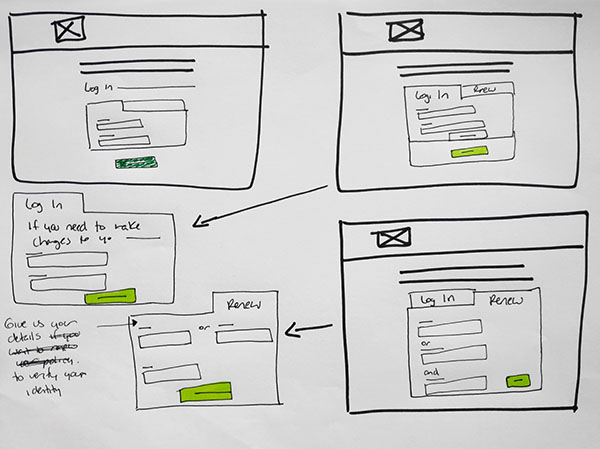 Log In
Log In
Renew
Log In
If you need to make
changes to yo
Renew
or
Give us your
details if you
want to renew
your policy.
to verify your
identity
Log In
Renew
or
and